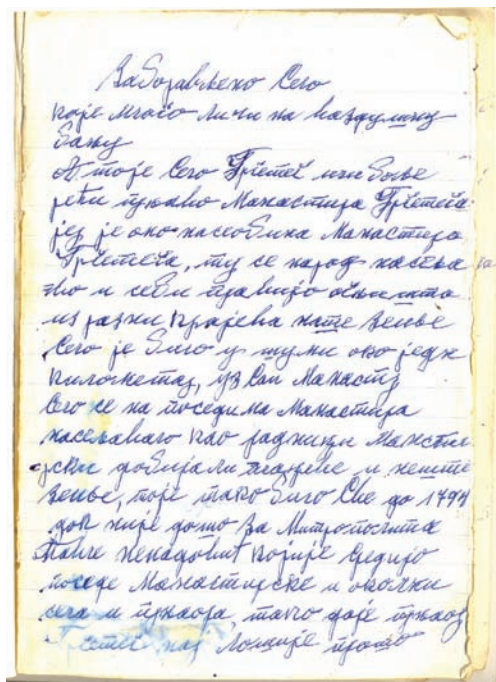 Заборављено Село
које много личи на ваздушну
бању
А то је Село Гргетег или боље
рећи прњаво Манастира Гргетега
јер је ово насеобина Манастира
Гргетега, ту се народ насељава
во и себи правијо огњишта
из разни крајева наше земље
Село је било у шуми око један
километар, уз сам Манастир
Село се на поседима Манастира
насељавало као радници Манастир
ски добијали плацеве и нешто
земље, то је тако било Све до 1794
док није дошо за Митрополита
Павле Ненадовић који је средијо
поседе Манастирске и околни
села и прњаора, тако да је прњаор
Гргетег нај лошије прошо